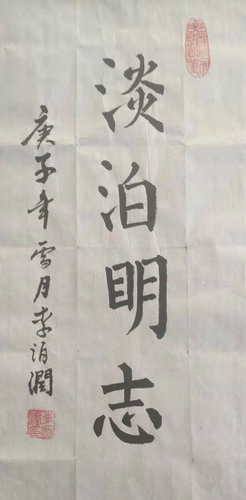 淡泊明志
庚子年雪月李泊润